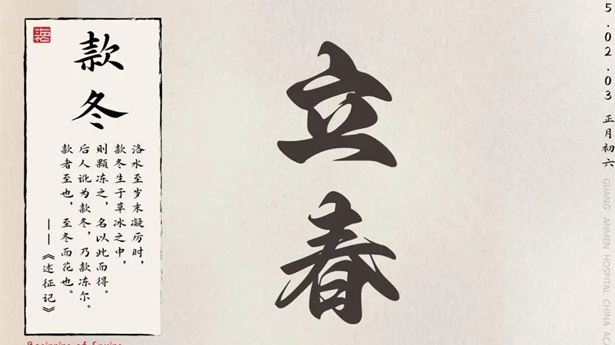 5.02.03 正月初六
GUANG ANMEN HOSPITAL CHINA ACA
立春
款冬
洛水至岁末凝厉时，
款冬生于草冰之中，
则颗冻之，名以此而得。
后人讹为款冬，乃款冻尔。
款者至也，至冬而花也。
——《述征记》